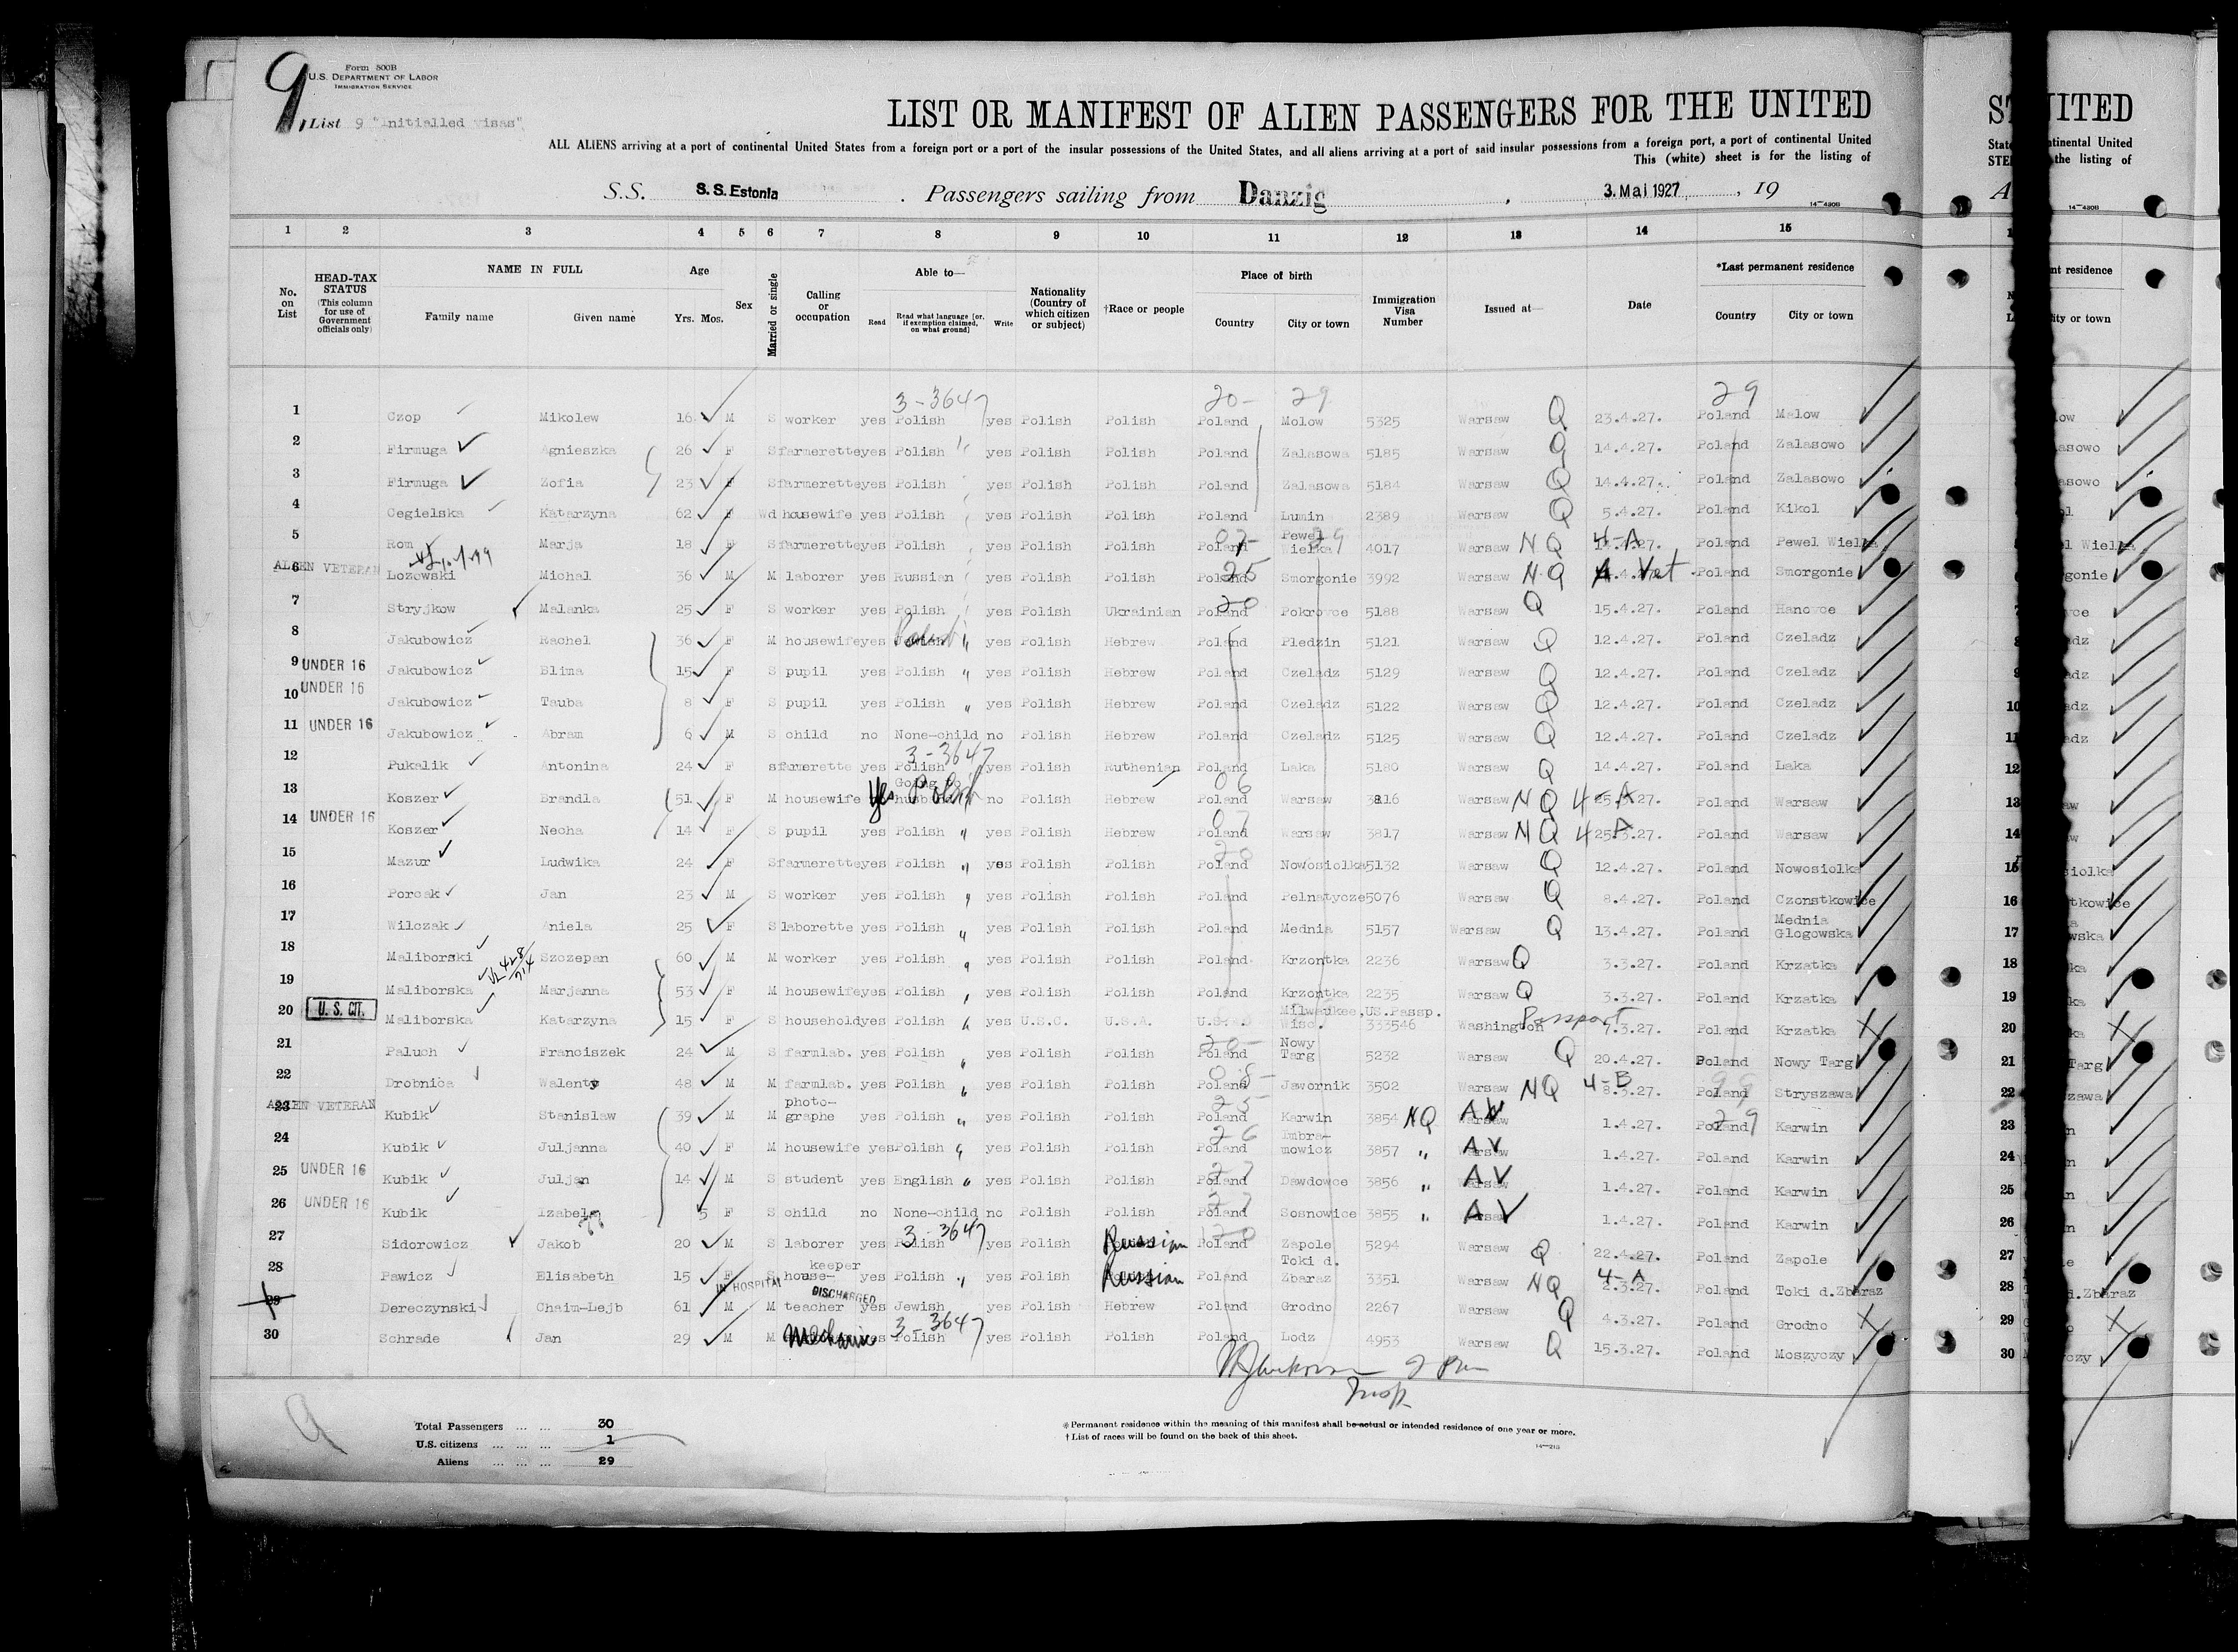 9
Form 500B
U.S. DEPARTMENT OF LABOR
IMMIGRATION SERVICE
List 9 "Initialled visas"
LIST OR MANIFEST OF ALIEN PASSENGERS FOR THE UNITED
ALL ALIENS arriving at a port of continental United States from a foreign port or a port of the insular possessions of the United States, and all aliens arriving at a port of said insular possessions from a foreign port, a port of continental United
This (white) sheet is for the listing of
S.S. S.S. Estonia . Passengers sailing from Danzig , 3. Mai 1927 , 19
14-430B
1 2 3 4 5 6 7 8 9 10 11 12 13 14 15
No. on List
HEAD-TAX STATUS (This column for use of Government officials only)
NAME IN FULL Family name Given name
Age Yrs. Mos.
Sex
Married or single
Calling or occupation
Able to— Read Read what language [or, if exemption claimed, on what ground] Write
Nationality (Country of which citizen or subject)
†Race or people
Place of birth Country City or town
Immigration Visa Number
Issued at—
Date
*Last permanent residence Country City or town
3-3647 20- 29 29
1 Czop Mikolew 16 M S worker yes Polish yes Polish Polish Poland Molow 5325 Warsaw Q 23.4.27. Poland Malow
2 Firmuga Agnieszka 26 F S farmerette yes Polish " yes Polish Polish Poland Zalasowa 5185 Warsaw Q 14.4.27. Poland Zalasowo
3 Firmuga Zofia 23 F S farmerette yes Polish yes Polish Polish Poland Zalasowa 5184 Warsaw Q 14.4.27. Poland Zalasowo
4 Cegielska Katarzyna 62 F Wd housewife yes Polish yes Polish Polish Poland Lumin 2389 Warsaw Q 5.4.27. Poland Kikol
5 Rom Marja 18 F S farmerette yes Polish yes Polish Polish Poland 07- Pewel Wielka 29 4017 Warsaw NQ 4-A Poland Pewel Wielka
6 ALIEN VETERAN Lozowski Michal 36 M M laborer yes Russian yes Polish Polish Poland 25 Smorgonie 3992 Warsaw NQ A Vet Poland Smorgonie
7 Stryjkow Malanka 25 F S worker yes Polish yes Polish Ukrainian Poland 20 Pokrovce 5188 Warsaw Q 15.4.27. Poland Hanovce
8 Jakubowicz Rachel 36 F M housewife yes Polish " yes Polish Hebrew Poland Pledzin 5121 Warsaw Q 12.4.27. Poland Czeladz
9 UNDER 16 Jakubowicz Blima 15 F S pupil yes Polish " yes Polish Hebrew Poland Czeladz 5129 Warsaw Q 12.4.27. Poland Czeladz
10 UNDER 16 Jakubowicz Tauba 8 F S pupil yes Polish " yes Polish Hebrew Poland Czeladz 5122 Warsaw Q 12.4.27. Poland Czeladz
11 UNDER 16 Jakubowicz Abram 6 M S child no None-child no Polish Hebrew Poland Czeladz 5125 Warsaw Q 12.4.27. Poland Czeladz
3-3647
12 Pukalik Antonina 24 F s farmerette yes Polish yes Polish Ruthenian Poland Laka 5180 Warsaw Q 14.4.27. Poland Laka
13 Koszer Brandla 51 F M housewife yes Going to husband Polish no Polish Hebrew Poland 06 Warsaw 3816 Warsaw NQ 4-A 25.3.27. Poland Warsaw
14 UNDER 16 Koszer Necha 14 F S pupil yes Polish " yes Polish Hebrew Poland 07 Warsaw 3817 Warsaw NQ 4 A 25.3.27. Poland Warsaw
15 Mazur Ludwika 24 F S farmerette yes Polish " yes Polish Polish Poland 20 Nowosiolka 5132 Warsaw Q 12.4.27. Poland Nowosiolka
16 Porcak Jan 23 M S worker yes Polish " yes Polish Polish Poland Pelnatycze 5076 Warsaw Q 8.4.27. Poland Czonstkowice
17 Wilczak Aniela 25 F S laborette yes Polish " yes Polish Polish Poland Mednia 5157 Warsaw Q 13.4.27. Poland Mednia Glogowska
18 Maliborski Szczepan 60 M M worker yes Polish " yes Polish Polish Poland Krzontka 2236 Warsaw Q 3.3.27. Poland Krzatka
19 Maliborska Marjanna 53 F M housewife yes Polish " yes Polish Polish Poland Krzontka 2235 Warsaw Q 3.3.27. Poland Krzatka
20 U.S. CIT. Maliborska Katarzyna 15 F S household yes Polish " yes U.S.C. U.S.A. U.S.A. Milwaukee, Wisc. US.Passp. 333546 Washington Passport 7.3.27. Poland Krzatka
21 Paluch Franciszek 24 M S farmlab. yes Polish " yes Polish Polish Poland 20- Nowy Targ 5232 Warsaw Q 20.4.27. Poland Nowy Targ
22 Drobnica Walenty 48 M M farmlab. yes Polish " yes Polish Polish Poland 08- Jawornik 3502 Warsaw NQ 4-B 8.3.27. Poland Stryszawa
23 ALIEN VETERAN Kubik Stanislaw 39 M M photo-graphe yes Polish " yes Polish Polish Poland 25 Karwin 3854 NQ Warsaw AV 1.4.27. Poland 29 Karwin
24 Kubik Juljanna 40 F M housewife yes Polish " yes Polish Polish Poland 26 Imbra-mowicz 3857 " Warsaw AV 1.4.27. Poland Karwin
25 UNDER 16 Kubik Juljan 14 M S student yes English " yes Polish Polish Poland 27 Dawdowce 3856 " Warsaw AV 1.4.27. Poland Karwin
26 UNDER 16 Kubik Izabela 5 F S child no None-child no Polish Polish Poland 27 Sosnowice 3855 " Warsaw AV 1.4.27. Poland Karwin
3-3647
27 Sidorowicz Jakob 20 M S laborer yes Polish yes Polish Russian Poland 20 Zapole 5294 Warsaw Q 22.4.27. Poland Zapole
28 Pawicz Elisabeth 15 F S house-keeper yes Polish " yes Polish Russian Poland Toki d. Zbaraz 3351 Warsaw NQ 4-A 2.3.27. Poland Toki d.Zbaraz
IN HOSPITAL DISCHARGED
29 Dereczynski Chaim-Lejb 61 M M teacher yes Jewish yes Polish Hebrew Poland Grodno 2267 Warsaw Q 4.3.27. Poland Grodno
30 Schrade Jan 29 M M Mechanic yes Polish 3-3647 yes Polish Polish Poland Lodz 4953 Warsaw Q 15.3.27. Poland Moszyczy
Insp.
9
Total Passengers ... ... 30
U.S. citizens ... ... ... 1
Aliens ... ... ... 29
*Permanent residence within the meaning of this manifest shall be actual or intended residence of one year or more.
†List of races will be found on the back of this sheet.
14-213